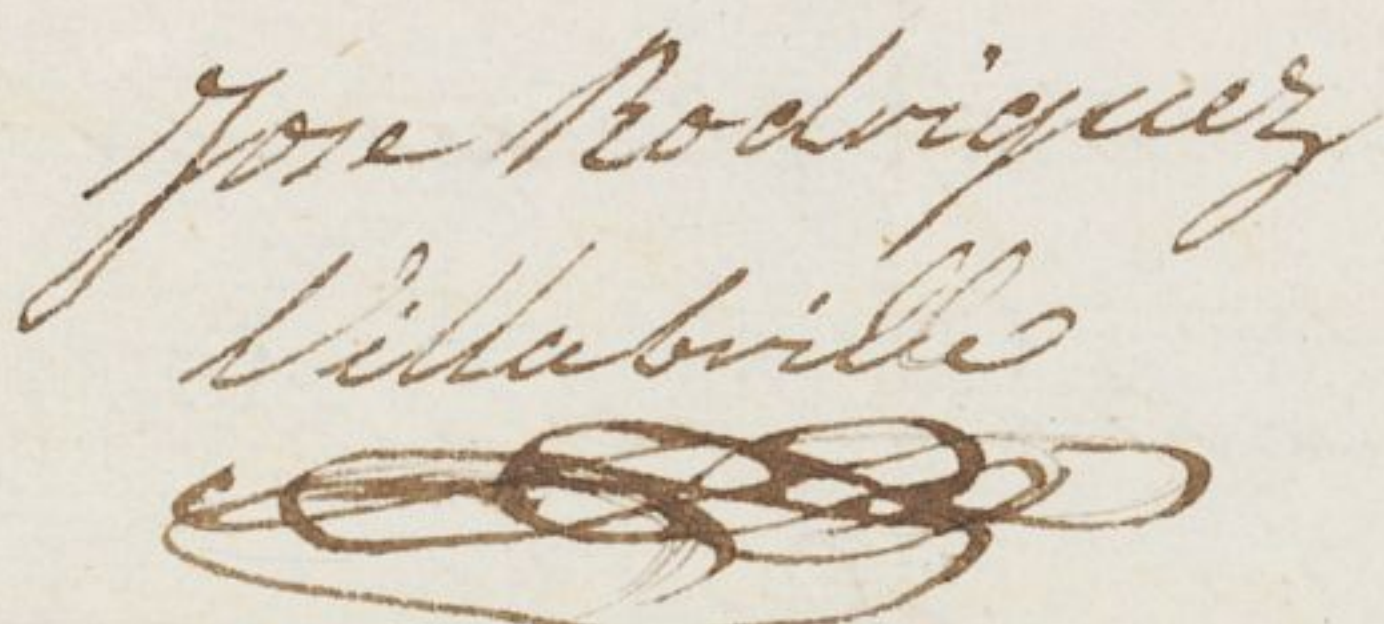 Jose Rodriguez
Villabrille